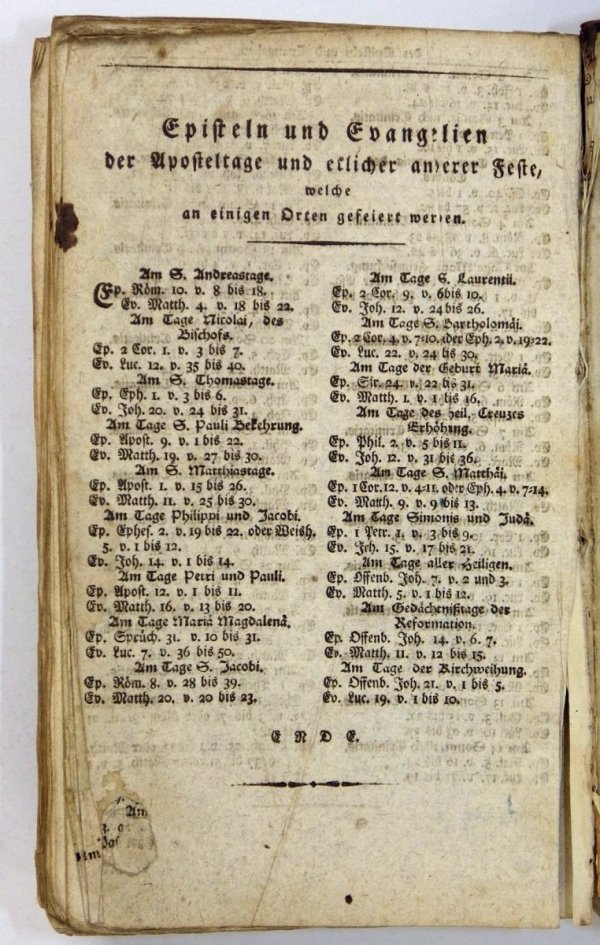 Episteln und Evangelien
der Aposteltage und etlicher anderer Feste,
welche
an einigen Orten gefeiert werden.
Am S. Andreastage.
Ep. Röm. 10. v. 8 bis 18.
Ev. Matth. 4. v. 18 bis 22.
Am Tage Nicolai, des
Bischofs.
Ep. 2 Cor. 1. v. 3 bis 7.
Ev. Luc. 12. v. 35 bis 40.
Am S. Thomastage.
Ep. Eph. 1. v. 3 bis 6.
Ev. Joh. 20. v. 24 bis 31.
Am Tage S. Pauli Bekehrung.
Ep. Apost. 9. v. 1 bis 22.
Ev. Matth. 19. v. 27 bis 30.
Am S. Matthiastage.
Ep. Apost. 1. v. 15 bis 26.
Ev. Matth. 11. v. 25 bis 30.
Am Tage Philippi und Jacobi.
Ep. Ephes. 2. v. 19 bis 22. oder Weish.
5. v. 1 bis 12.
Ev. Joh. 14. v. 1 bis 14.
Am Tage Petri und Pauli.
Ep. Apost. 12. v. 1 bis 11.
Ev. Matth. 16. v. 13 bis 20.
Am Tage Mariä Magdalenä.
Ep. Sprüch. 31. v. 10 bis 31.
Ev. Luc. 7. v. 36 bis 50.
Am Tage S. Jacobi.
Ep. Röm. 8. v. 28 bis 39.
Ev. Matth. 20. v. 20 bis 23.
Am Tage S. Laurentii.
Ep. 2 Cor. 9. v. 6 bis 10.
Ev. Joh. 12. v. 24 bis 26.
Am Tage S. Bartholomäi.
Ep. 2 Cor. 4. v. 7-10. oder Eph. 2. v. 19-22.
Ev. Luc. 22. v. 24 bis 30.
Am Tage der Geburt Mariä.
Ep. Sir. 24. v. 22 bis 31.
Ev. Matth. 1. v. 1 bis 16.
Am Tage des heil. Creuzes
Erhöhung.
Ep. Phil. 2. v. 5 bis 11.
Ev. Joh. 12. v. 31 bis 36.
Am Tage S. Matthäi.
Ep. 1 Cor. 12. v. 4-11. oder Eph. 4. v. 7-14.
Ev. Matth. 9. v. 9 bis 13.
Am Tage Simonis und Judä.
Ep. 1 Petr. 1. v. 3 bis 9.
Ev. Joh. 15. v. 17 bis 21.
Am Tage aller Heiligen.
Ep. Offenb. Joh. 7. v. 2 und 3.
Ev. Matth. 5. v. 1 bis 12.
Am Gedächtnißtage der
Reformation.
Ep. Offenb. Joh. 14. v. 6. 7.
Ev. Matth. 11. v. 12 bis 15.
Am Tage der Kirchweihung.
Ep. Offenb. Joh. 21. v. 1 bis 5.
Ev. Luc. 19. v. 1 bis 10.
ENDE.
Am